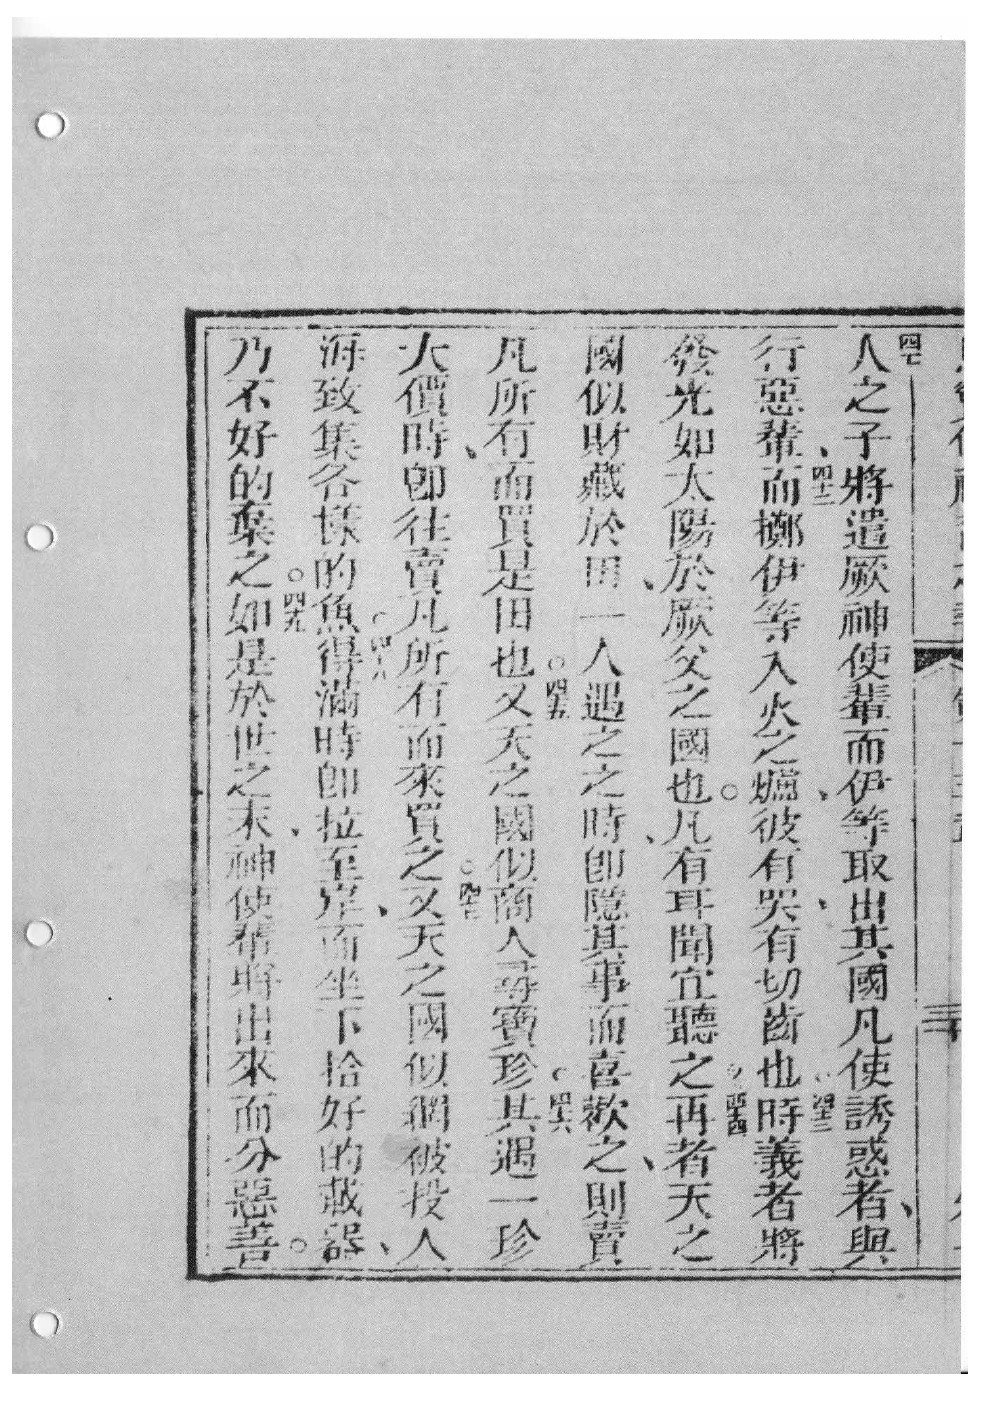 四七人之子將遣厥神使輩而伊等取出其國凡使誘惑者、與
行惡輩、四十二而擲伊等入火之爐、彼有哭、有切齒也。四十三時義者將
發光如太陽於厥父之國也。凡有耳聞宜聽之。四十四再者天之
國似財藏於田、一人遇之之時、即隱其事而喜歡之、則賣
凡所有、而買是田也。四五又天之國似商人尋寶珍。四六其遇一珍
大價時、即往賣凡所有而來買之。四七又天之國似網被投入
海致集各樣的魚。四八得滿時即拉至岸、而坐下拾好的藏器、
乃不好的棄之。四九如是於世之末、神使輩將出來而分惡善。